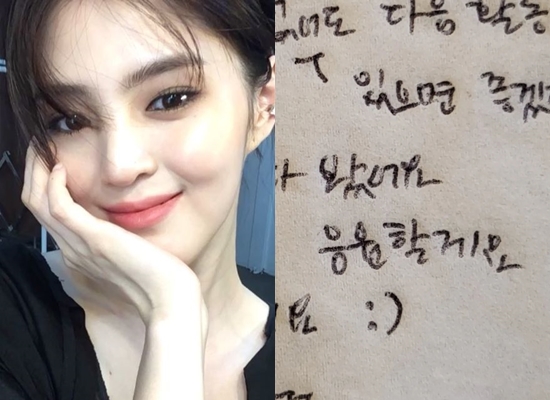 다음 활동
있으면 좋겠
봤어요
응원할게요
요 :)